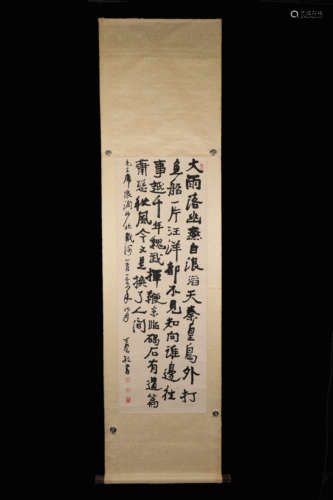 大雨落幽燕白浪滔天秦皇島外打
魚船一片汪洋都不見知向誰邊往
事越千年魏武揮鞭东临碣石有遺篇
蕭瑟秋風今又是换了人间
毛主席浪淘沙北戴河一首